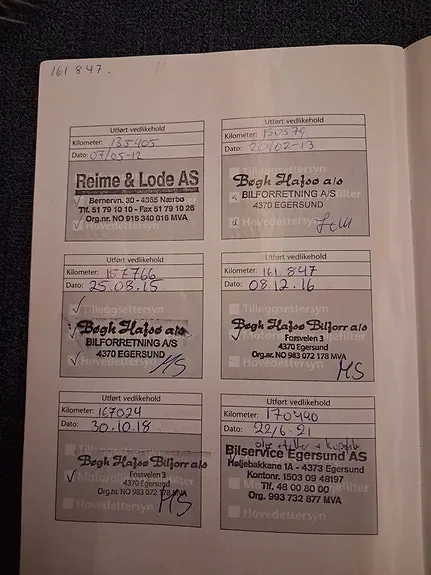 161 847.
Utført vedlikehold
Kilometer: 135405
Dato: 07/05-12
Reime & Lode AS
Bernervn. 30 - 4355 Nærbø
Tlf. 51 79 10 10 - Fax 51 79 10 26
Org.nr. NO 915 340 016 MVA
Hovedettersyn
Utført vedlikehold
Kilometer: 150579
Dato: 20/02-13
Bøgh Hafsø a/s
BILFORRETNING A/S
4370 EGERSUND
Hovedettersyn
Utført vedlikehold
Kilometer: 157766
Dato: 25.08.15
Tilleggsettersyn
Bøgh Hafsø a/s
BILFORRETNING A/S
4370 EGERSUND
MS
Utført vedlikehold
Kilometer: 161.847
Dato: 08.12.16
Tilleggsettersyn
Bøgh Hafsø Bilforr a/s
Fossveien 3
4370 Egersund
Org.nr. NO 983 072 178 MVA
Hovedettersyn
MS
Utført vedlikehold
Kilometer: 167024
Dato: 30.10.18
Bøgh Hafsø Bilforr a/s
Fossveien 3
4370 Egersund
Org.nr. NO 983 072 178 MVA
Hovedettersyn
MS
Utført vedlikehold
Kilometer: 170490
Dato: 22/6-21
olje + filter +
Bilservice Egersund AS
Høljebakkane 1A - 4373 Egersund
Kontonr. 1503 09 48197
Tlf. 48 00 80 00
Org. 993 732 877 MVA
Hovedettersyn